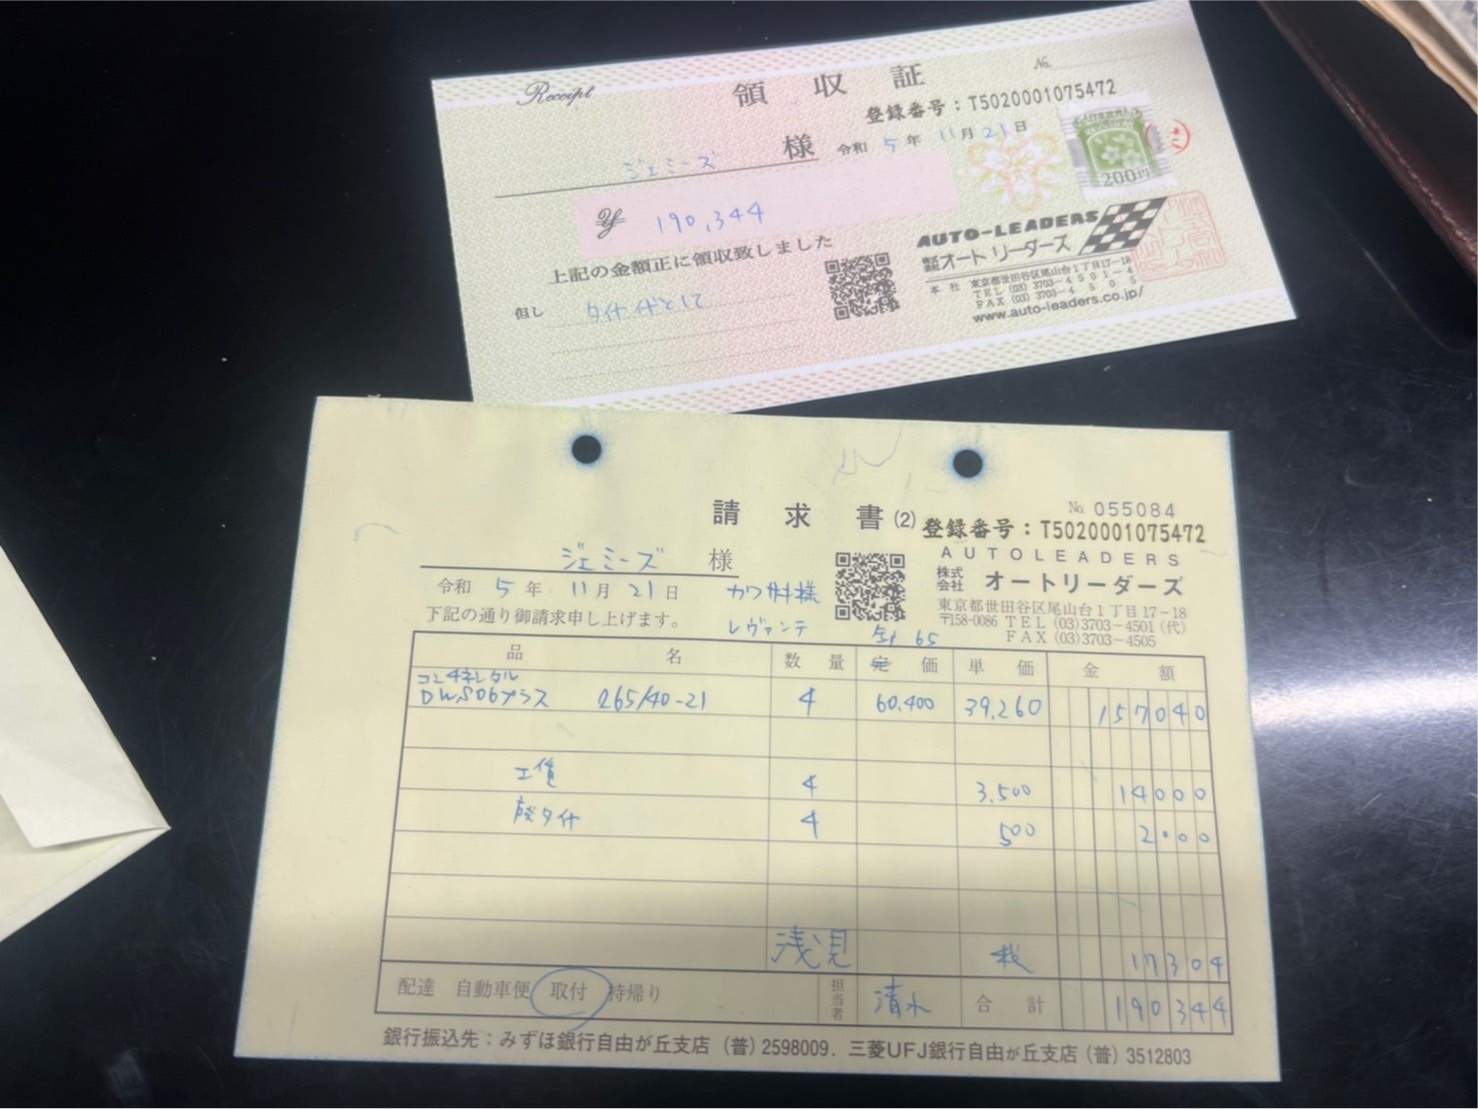 Receipt
領収証
No.
登録番号：T5020001075472
ジェミーズ 様 令和 5 年 11 月 21 日
200円
¥ 190,344
上記の金額正に領収致しました
但し タイヤ代として
AUTO-LEADERS
株式会社 オートリーダーズ
本社 東京都世田谷区尾山台1丁目17-18
TEL (03) 3703-4501~4
FAX (03) 3703-4505
www.auto-leaders.co.jp/
請求書(2)
No. 055084
登録番号：T5020001075472
ジェミーズ 様
AUTOLEADERS
株式会社 オートリーダーズ
令和 5 年 11 月 21 日
カワサキ様
東京都世田谷区尾山台1丁目17-18
〒158-0086 TEL (03)3703-4501 (代)
FAX (03)3703-4505
下記の通り御請求申し上げます。
レヴァンテ
65
品名 数量 定価 単価 金額
コンチネンタル
DWS06プラス 265/40-21 4 60,400 39,260 157040
工賃 4 3,500 14000
廃タイヤ 4 500 2000
浅見 税 17304
配達 自動車便 取付 持帰り 担当者 清水 合計 190344
銀行振込先：みずほ銀行自由が丘支店（普）2598009．三菱UFJ銀行自由が丘支店（普）3512803